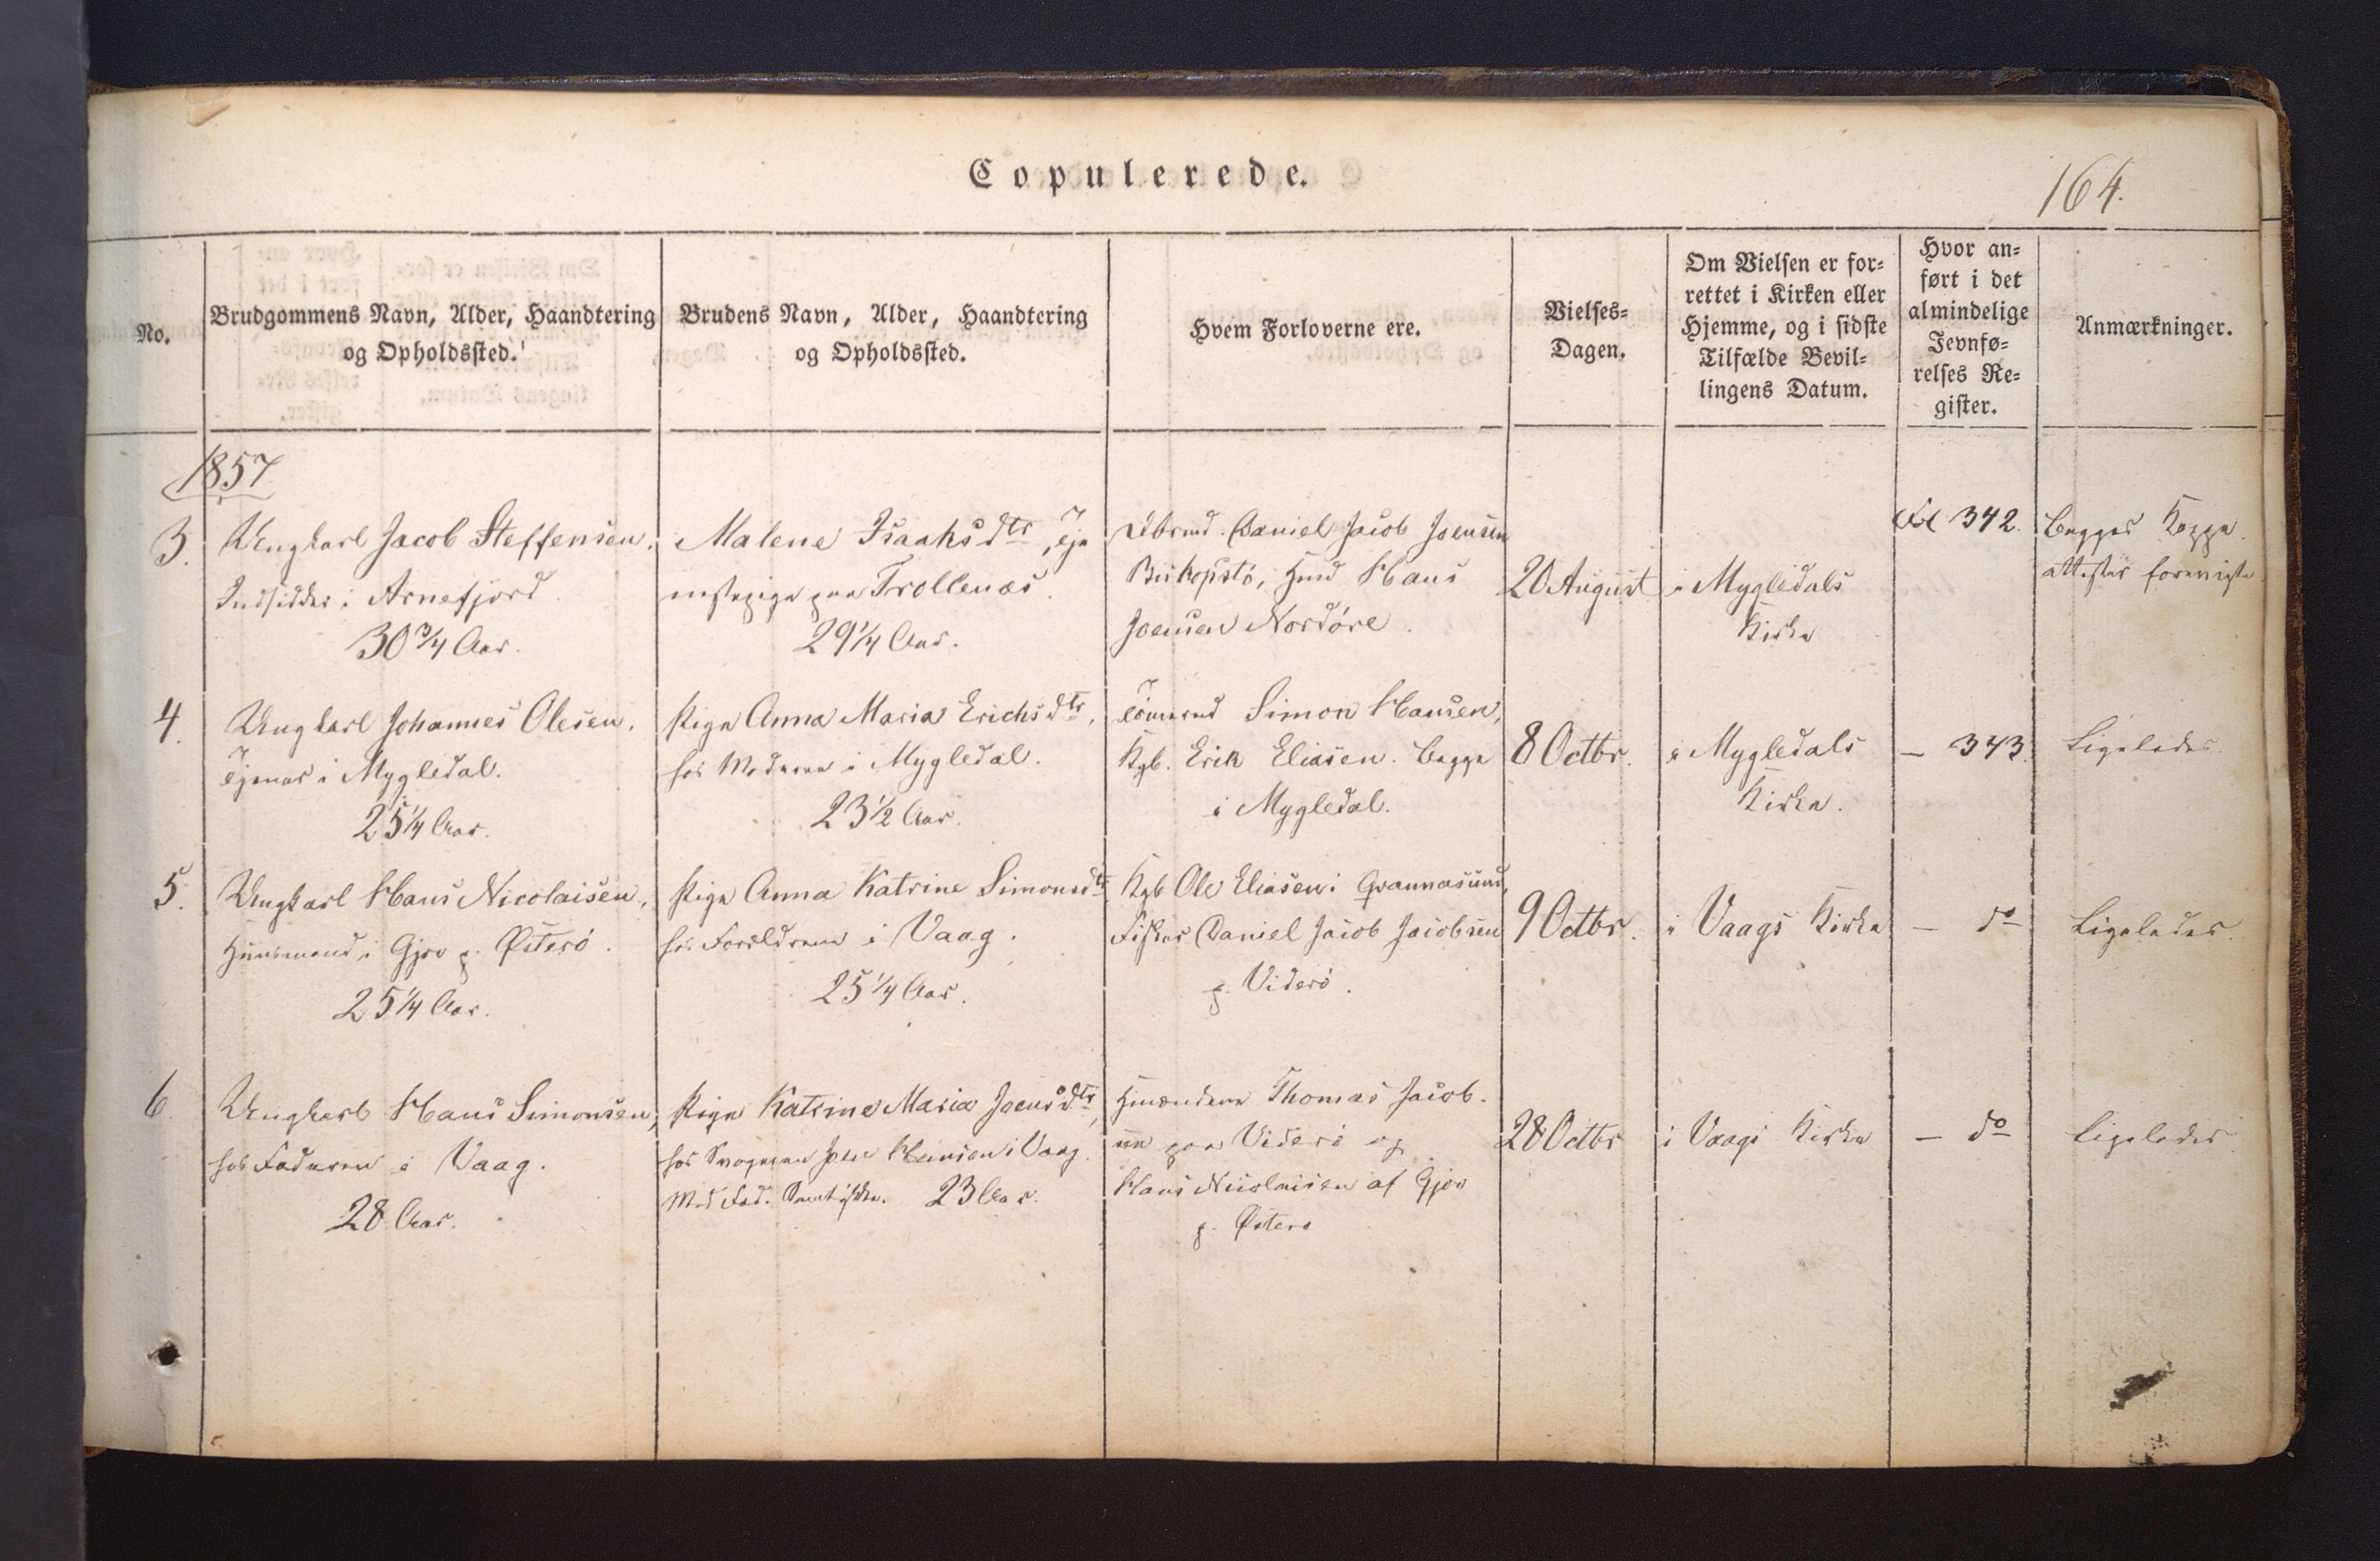 Copulerede.
164.
No.
Brudgommens Navn, Alder, Haandtering
og Opholdssted.
Brudens Navn, Alder, Haandtering
og Opholdssted.
Hvem Forloverne ere.
Vielses-
Dagen.
Om Vielsen er for-
rettet i Kirken eller
Hjemme, og i sidste
Tilfælde Bevil-
lingens Datum.
Hvor an-
ført i det
almindelige
Jevnfø-
relses Re-
gister.
Anmærkninger.
1857
3.
Ungkarl Jacob Steffensen,
Indsidder i Arnefjord.
30 3/4 Aar.
Malene Isaksdtr, Tje
nestepige paa Trollenæs.
29 1/4 Aar.
Daniel Jacob Joensen
Biskopstö, Hmd Hans
Joensen Nordöre.
20 August
i Mygledals
Kirke
Fol 342.
Begges Koppe
attester foreviste
4.
Ungkarl Johannes Olesen,
Tjener i Mygledal.
25 1/4 Aar.
Pige Anna Maria Erichsdtr,
hos Moderen i Mygledal.
23 1/2 Aar.
Simon Hansen,
Kgb. Erik Eliasen. Begge
i Mygledal.
8 Octbr.
i Mygledals
Kirke.
— 343.
Ligeledes.
5.
Ungkarl Hans Nicolaisen,
Huusmand i Gjov p. Østerö.
25 1/4 Aar.
Pige Anna Katrine Simonsdtr
hos Forældrene i Vaag.
25 1/4 Aar.
Kgb Ole Eliasen i Qvannasund,
Fisker Daniel Jacob Jacobsen
p. Viderö.
9 Octbr.
i Vaags Kirke
— do
Ligeledes.
6.
Ungkarl Hans Simonsen,
hos Faderen i Vaag.
28 Aar.
Pige Katrine Maria Joensdtr,
hos Svogeren Hansen i Vaag.
23 Aar.
Hmændene Thomas Jacob.
paa Viderö og
Hans Nicolaisen af Gjov
p. Østerö
28 Octbr
i Vaags Kirke
— do
Ligeledes